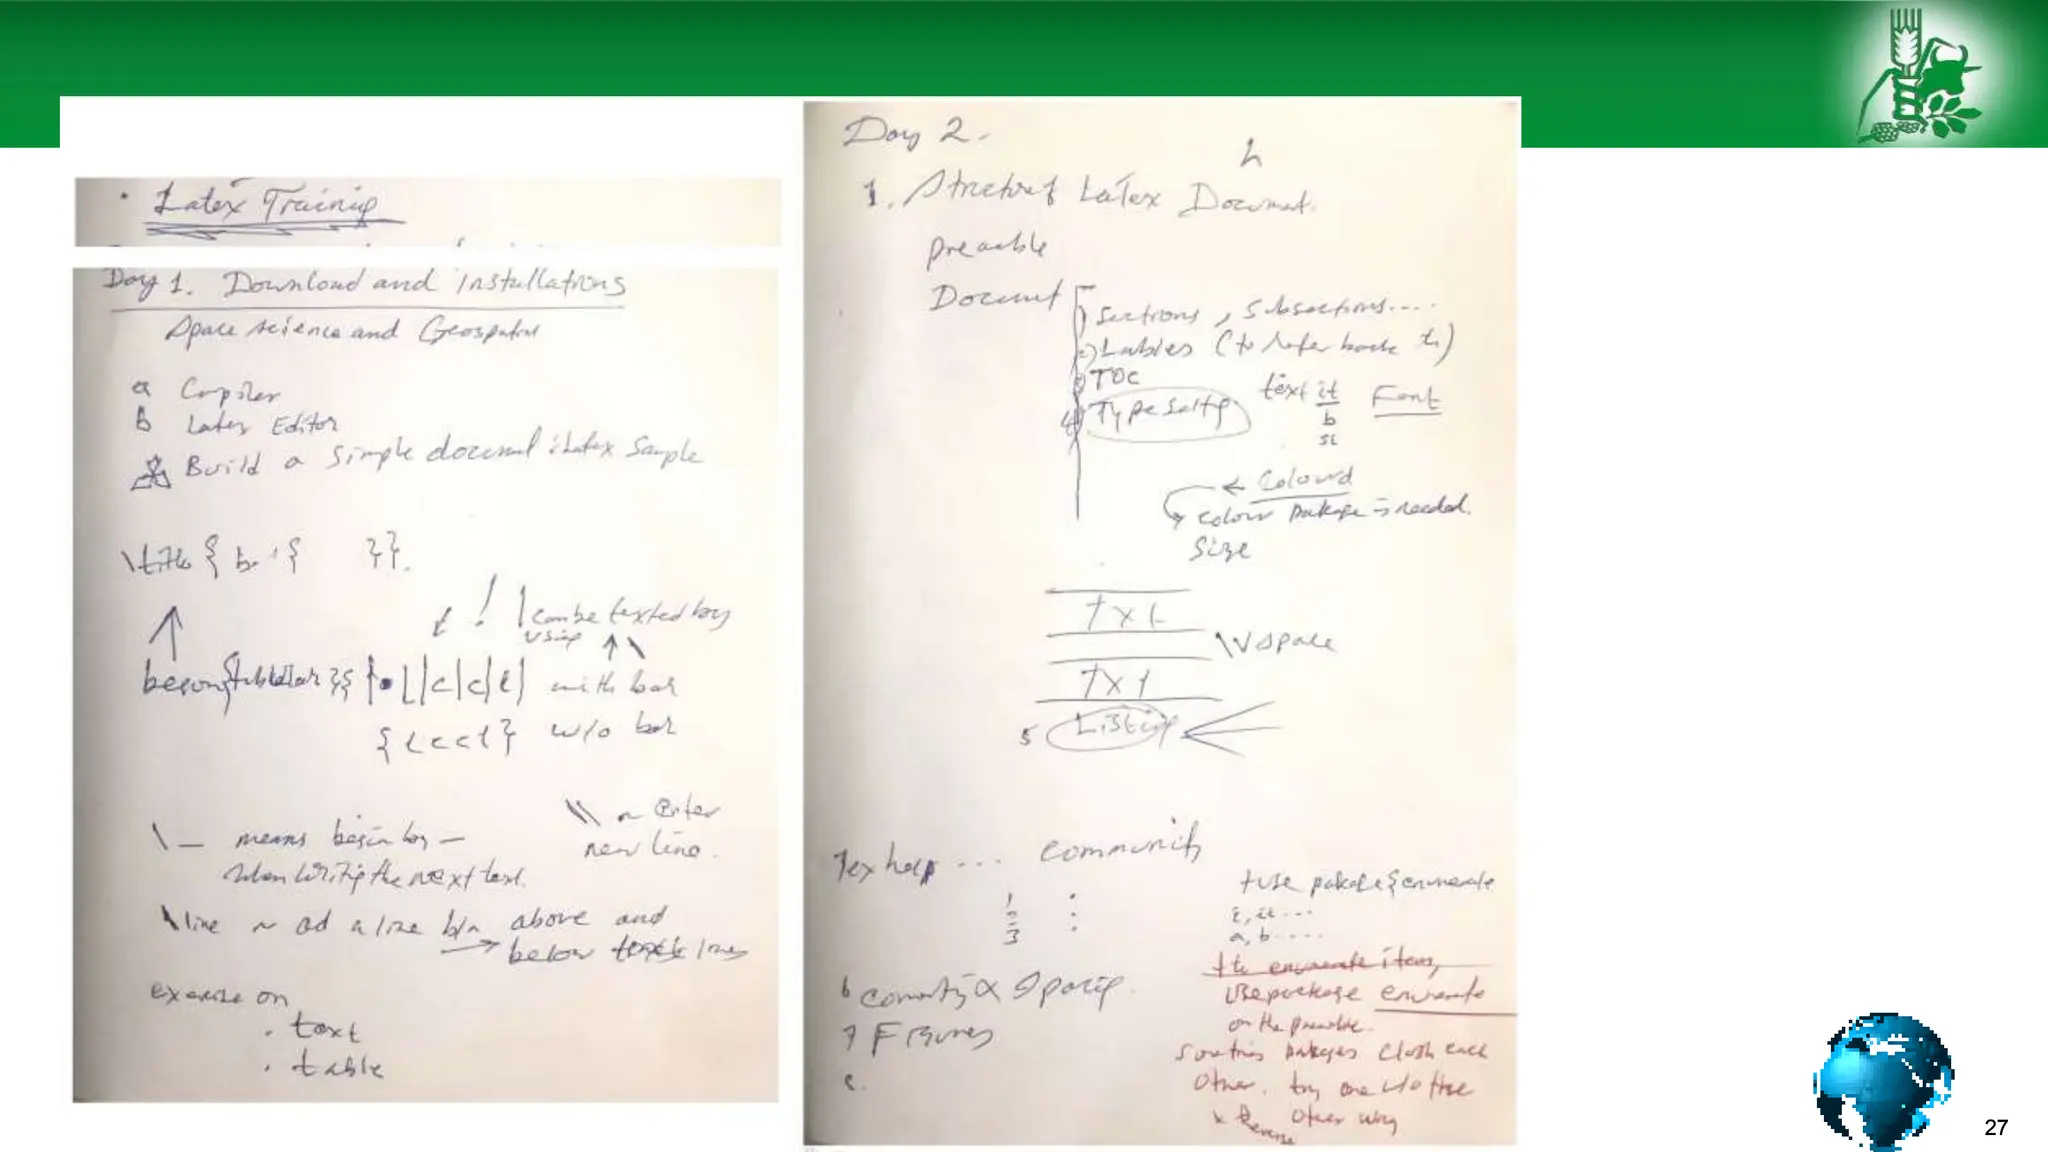 Latex Training
Day 1. Download and installations
Space science and Geospatial
a Compiler
b Latex Editor
Build a simple document : Latex Sample
\title { bf { }}.
! can be texted by
using \
begin{tabular}{ |l|c|c|l| with bar
{lccl} w/o bar
\\ ~ enter
new line.
\_ means begin by _
when writing the next text.
\line ~ ad a line b/n above and
below lines
exercise on
. text
. table
Day 2.
1. Structure of LaTex Document.
preamble
Document
1) Sections, subsections....
2) Lables (to refer back to)
3) TOC
4) Type setting text it Font
b
sc
← Colourd
colour pakage is needed.
Size
Txt
\Vspace
Txt
5 Listing
Tex help ... community
1 .
2 .
3 .
+ use pakage {enumerate
i, ii ...
a, b ....
to enumerate items,
Use package enumerate
on the preamble.
Sometimes pakages clash each
other. try one w/o the
other way
x Reverse
6 Commenting & Spacing.
7 Figures
8.
27